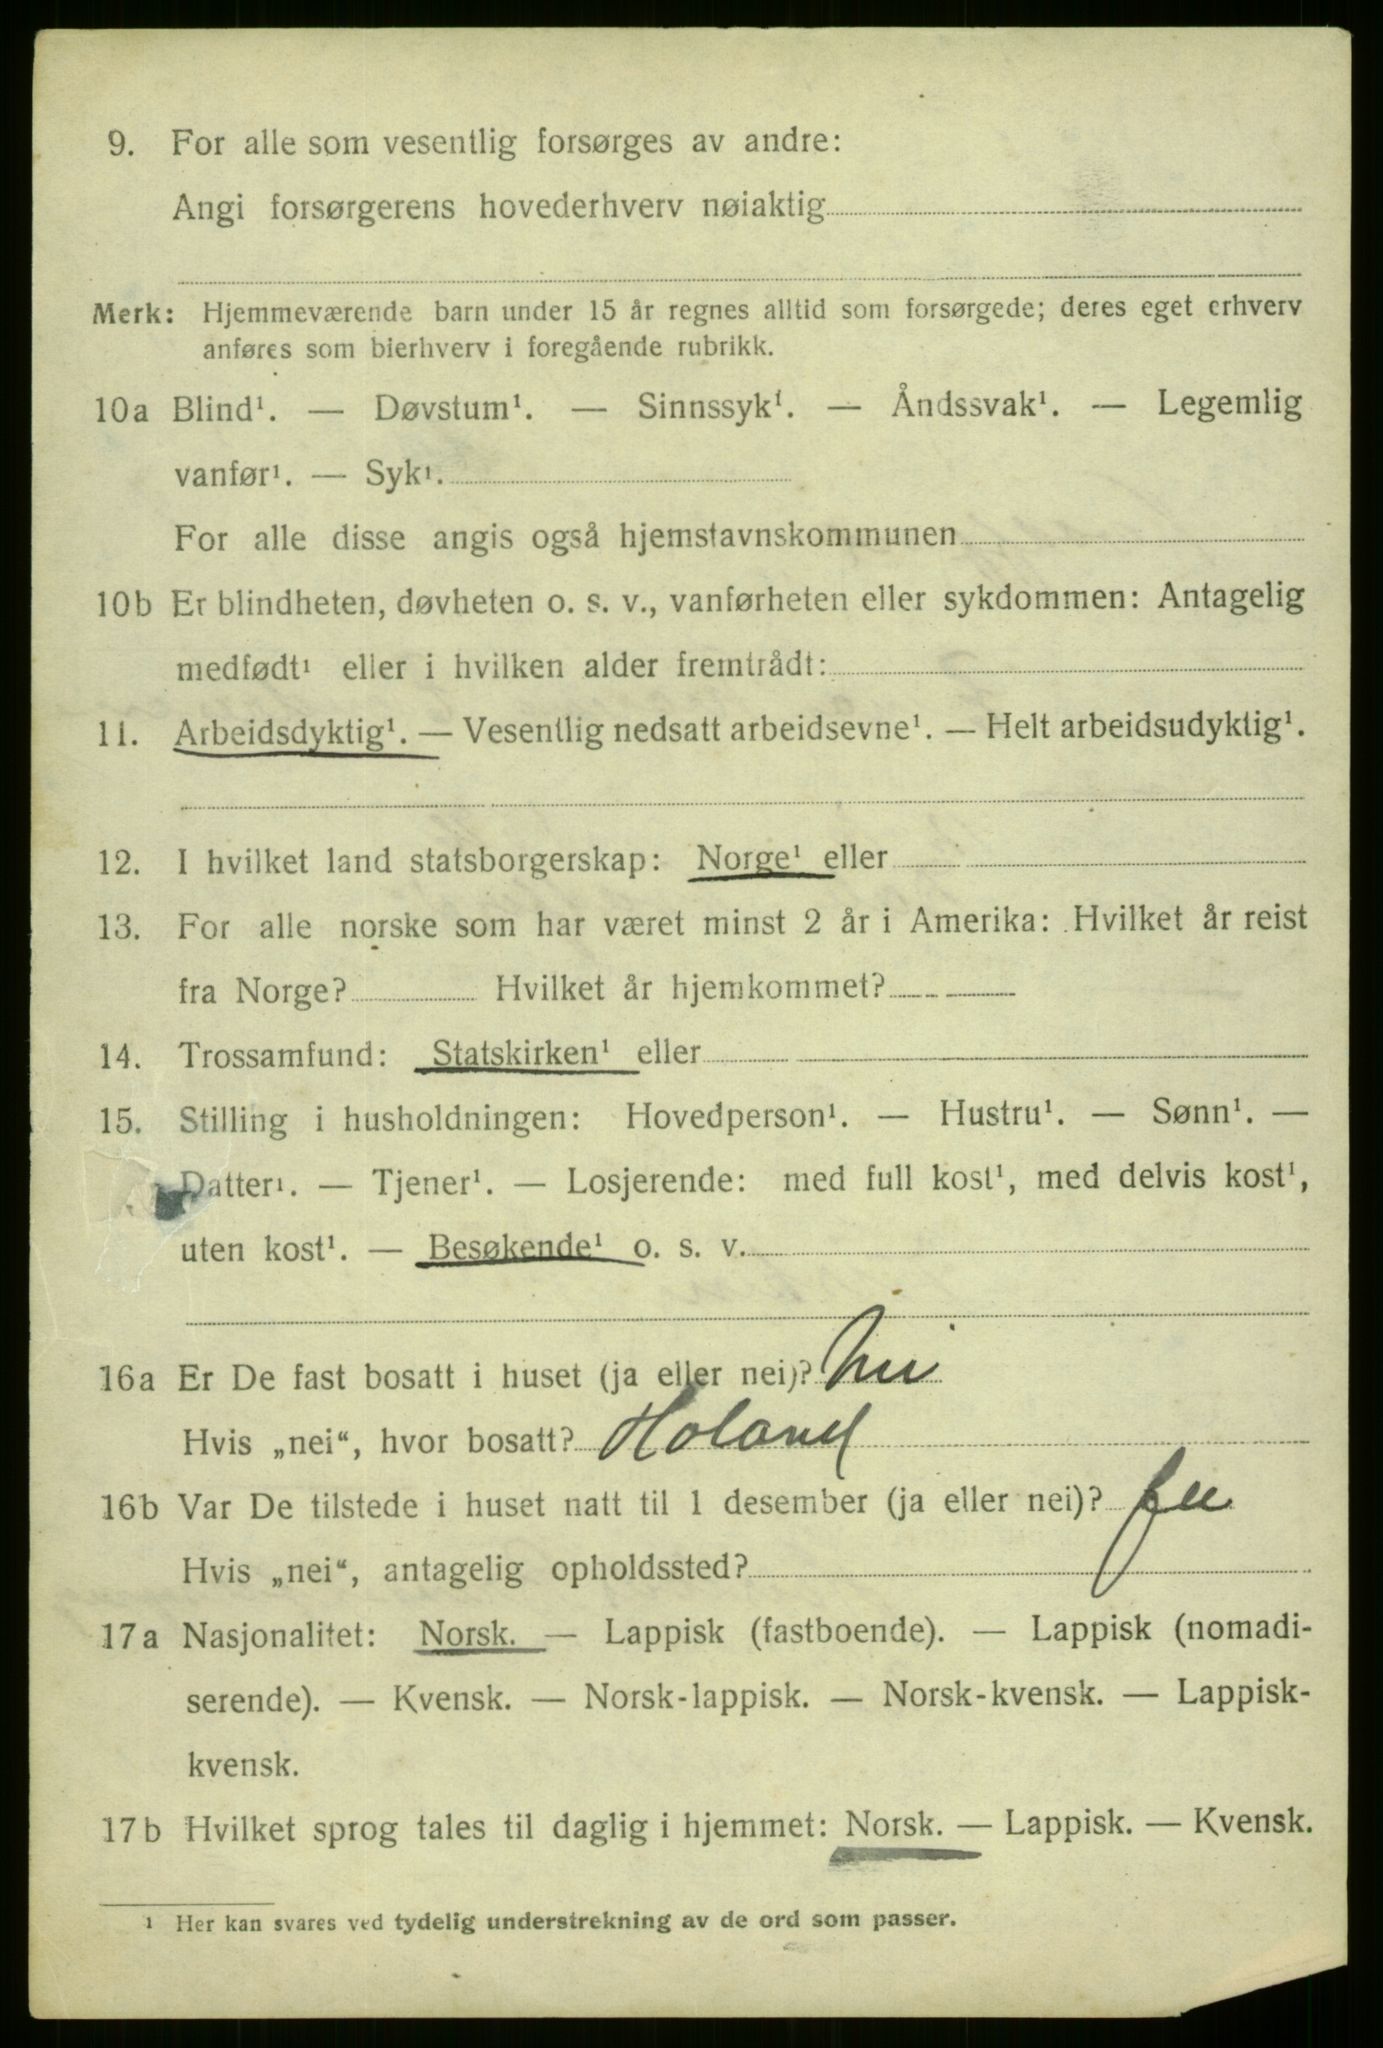 9. For alle som vesentlig forsørges av andre:
Angi forsørgerens hovederhverv nøiaktig
Merk: Hjemmeværende barn under 15 år regnes alltid som forsørgede; deres eget erhverv
anføres som bierhverv i foregående rubrikk.
10a Blind¹. — Døvstum¹. — Sinnssyk¹. — Åndssvak¹. — Legemlig
vanfør¹. — Syk¹.
For alle disse angis også hjemstavnskommunen
10b Er blindheten, døvheten o. s. v., vanførheten eller sykdommen: Antagelig
medfødt¹ eller i hvilken alder fremtrådt:
11. Arbeidsdyktig¹. — Vesentlig nedsatt arbeidsevne¹. — Helt arbeidsudyktig¹.
12. I hvilket land statsborgerskap: Norge¹ eller
13. For alle norske som har været minst 2 år i Amerika: Hvilket år reist
fra Norge? Hvilket år hjemkommet?
14. Trossamfund: Statskirken¹ eller
15. Stilling i husholdningen: Hovedperson¹. — Hustru¹. — Sønn¹. —
Datter¹. — Tjener¹. — Losjerende: med full kost¹, med delvis kost¹,
uten kost¹. — Besøkende¹ o. s. v.
16a Er De fast bosatt i huset (ja eller nei)? Nei
Hvis „nei“, hvor bosatt? Holand
16b Var De tilstede i huset natt til 1 desember (ja eller nei)? ja
Hvis „nei“, antagelig opholdssted?
17a Nasjonalitet: Norsk. — Lappisk (fastboende). — Lappisk (nomadi-
serende). — Kvensk. — Norsk-lappisk. — Norsk-kvensk. — Lappisk-
kvensk.
17b Hvilket sprog tales til daglig i hjemmet: Norsk. — Lappisk. — Kvensk.
¹ Her kan svares ved tydelig understrekning av de ord som passer.